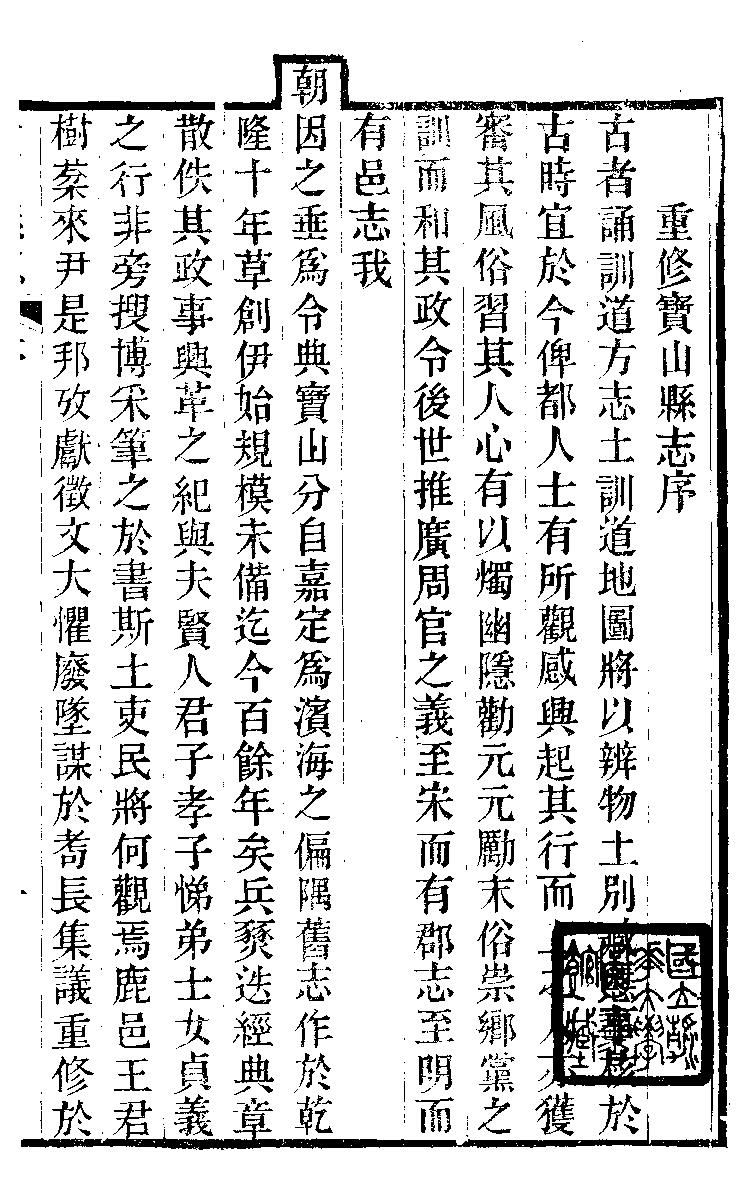 重修寶山縣志序
古者誦訓道方志土訓道地圖將以辨物土別事於
古時宜於今俾都人士有所觀感興起其行而獲
審其風俗習其人心有以燭幽隱勸元元勵末俗崇鄉黨之
訓而和其政令後世推廣周官之義至宋而有郡志至明而
有邑志我
朝因之垂爲令典寶山分自嘉定爲濱海之偏隅舊志作於乾
隆十年草創伊始規模未備迄今百餘年矣兵燹迭經典章
散佚其政事興革之紀與夫賢人君子孝子悌弟士女貞義
之行非旁搜博采筆之於書斯土吏民將何觀焉鹿邑王君
樹棻來尹是邦攷獻徵文大懼廢墜謀於耆長集議重修於